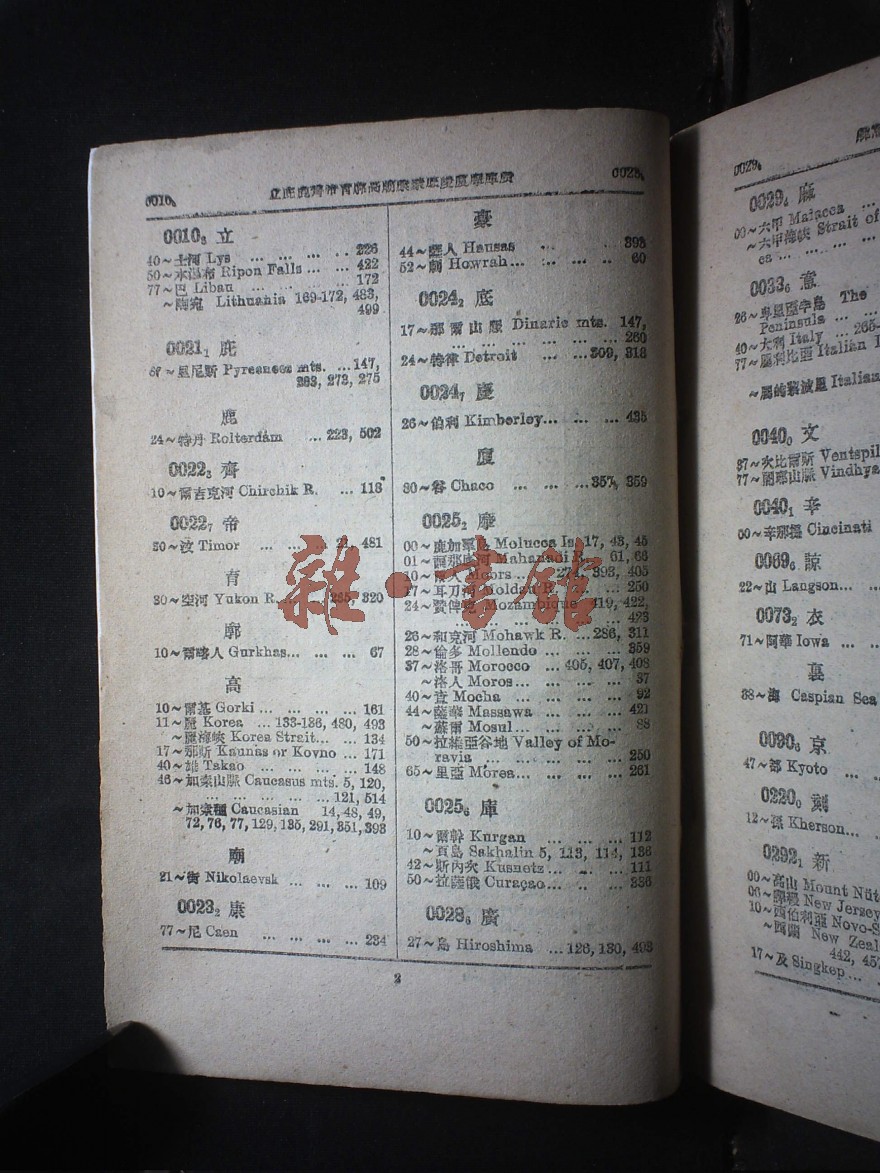 0010₈
0028₆
0010₈ 立
40～土河 Lys ... ... ... .. 226
50～本瀑布 Ripon Falls ... ... 422
77～巴 Liban ... ... ... ... 172
～陶宛 Lithuania 169-172, 483,
499
0021₁ 庇
～里尼斯 Pyreanees mts. ...147,
263, 273, 275
鹿
24～特丹 Rolterdam ... 223, 502
0022₃ 齊
10～爾吉克河 Chirchik R. ... 118
0022₇ 帝
30～汶 Timor ... ... ... 21, 481
育
30～空河 Yukon R. ... ... 295, 320
廓
10～爾喀人 Gurkhas... ... ... 67
高
10～爾基 Gorki ... ... ... ... 161
11～麗 Korea ... 133-136, 480, 493
～麗海峽 Korea Strait... ... 134
17～那斯 Kaunas or Kovno ... 171
40～雄 Takao ... ... ... ... 148
46～加索山脈 Caucasus mts. 5, 120,
... ... ... ... ... 121, 514
～加索種 Caucasian 14, 48, 49,
72, 76, 77, 129, 135, 291, 351, 393
廟
21～街 Nikolaevsk ... ... ... 109
0023₂ 康
77～尼 Caen ... ... ... ... 234
豪
44～薩人 Hausas ... ... 393
52～ Howrah... ... ... ... 60
0024₂ 底
17～那爾山脈 Dinaric mts. 147,
... ... ... ... ... ... 260
24～特律 Detroit ... ... 309, 318
0024₇ 慶
26～伯利 Kimberley... ... ... 435
廈
80～谷 Chaco ... ... ... 357, 359
0025₂ 摩
00～鹿加羣島 Molucca Is. 17, 43, 45
01～訶那底河 Mahanadi R. 61, 66
10～爾人 Moors ... ... 274, 393, 405
17～耳刀河 Moldau R. ... ... 250
24～贊俾 Mozambique 419, 422,
... ... ... ... ... ... 423
26～和克河 Mohawk R. ... 286, 311
28～倫多 Mollendo ... ... ... 359
37～洛哥 Morocco ... 405, 407, 408
～洛人 Moros... ... ... ... 37
40～查 Mocha ... ... ... ... 92
44～薩華 Massawa ... ... ... 421
～蘇爾 Mosul... ... ... ... 88
50～拉維亞谷地 Valley of Mo-
ravia ... ... ... ... ... 250
65～里亞 Morea... ... ... ... 261
0025₆ 庫
10～爾幹 Kurgan ... ... ... 112
～頁島 Sakhalin 5, 113, 114, 136
42～斯內次 Kusnetz... ... ... 111
50～拉薩俄 Curaçao... ... ... 336
0028₆ 廣
27～島 Hiroshima ... 126, 130, 493
2
雜·書館
0029₄
0029₄ 麻
00～六甲 Malacca ...
～六甲海峽 Strait of
ca ... ... ... ...
0033₆ 意
The
Peninsula ... ...
40～大利 Italy ... 265-
77～屬利比亞 Italian
Italian
0040₀ 文
37～次比爾斯 Ventspil
77～闍耶山脈 Vindhya
0040₁ 辛
00～辛那提 Cincinati
0069₆ 諒
22～山 Langson... ...
0073₂ 衣
71～阿華 Iowa ...
裏
38～海 Caspian Sea
0090₆ 京
47～都 Kyoto ...
0220₀ 刻
12～孫 Kherson...
0292₁ 新
00～高山 Mount
New Jersey
10～西伯利亞 Novo-S
～西蘭 New Zeal
442, 457
17～及 Singkep ...